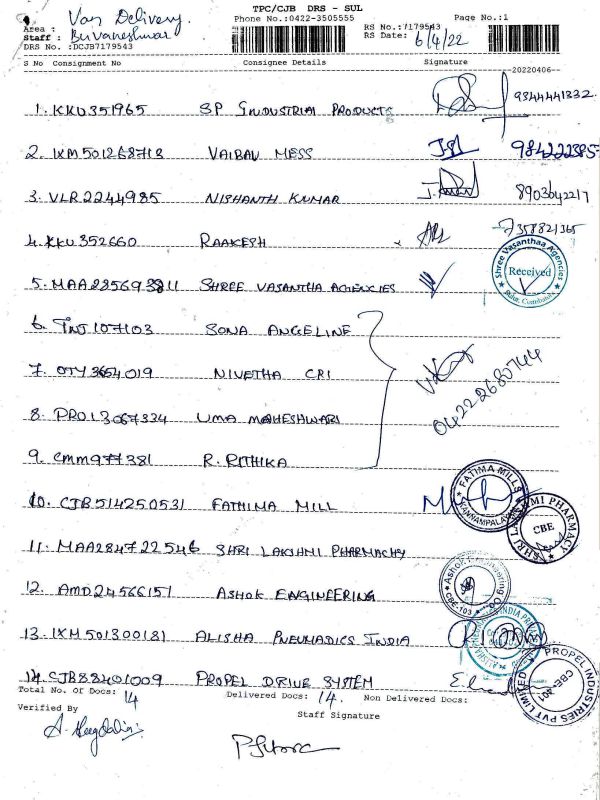 TPC/CJB DRS - SUL
Van Delivery
Phone No.:0422-3505555 Page No.:1
Area :
Staff : Buvaneshwar
RS No.:7179543
DRS No. :DCJB7179543
RS Date: 6/4/22
S No Consignment No Consignee Details Signature
20220406
1. KKU351965 SP INDUSTRIAL PRODUCTS 9344441332
2. IXM501268713 VAIBAV MESS 984222385
3. VLR2244985 NISHANTH KUMAR 8903642217
4. KKU352660 RAAKESH 7358821365
5. MAA285693811 SHREE VASANTHA AGENCIES
Shree Vasanthaa Agencies
Received
6. TNJ107103 SONA ANGELINE
7. OTY3654019 NIVETHA CRI
04222680744
8. PRO13067334 UMA MAHESHWARI
9. CMM977381 R. RITHIKA
10. CJB514250531 FATHIMA MILL
FATIMA MILLS
KANNAMPALAYAM
11. MAA284722546 SHRI LAKSHMI PHARMACHY
SHRI LAKSHMI PHARMACY
CBE
12. AMD24566151 ASHOK ENGINEERING
Ashok Engineering Co
CBE-103
13. IXM501300181 ALISHA PNEUMADICS INDIA
14. CJB88401009 PROPEL DRIVE SYSTEM
PROPEL INDUSTRIES PVT LIMITED
CBE-201
Total No. Of Docs: 14 Delivered Docs: 14. Non Delivered Docs:
Verified By Staff Signature